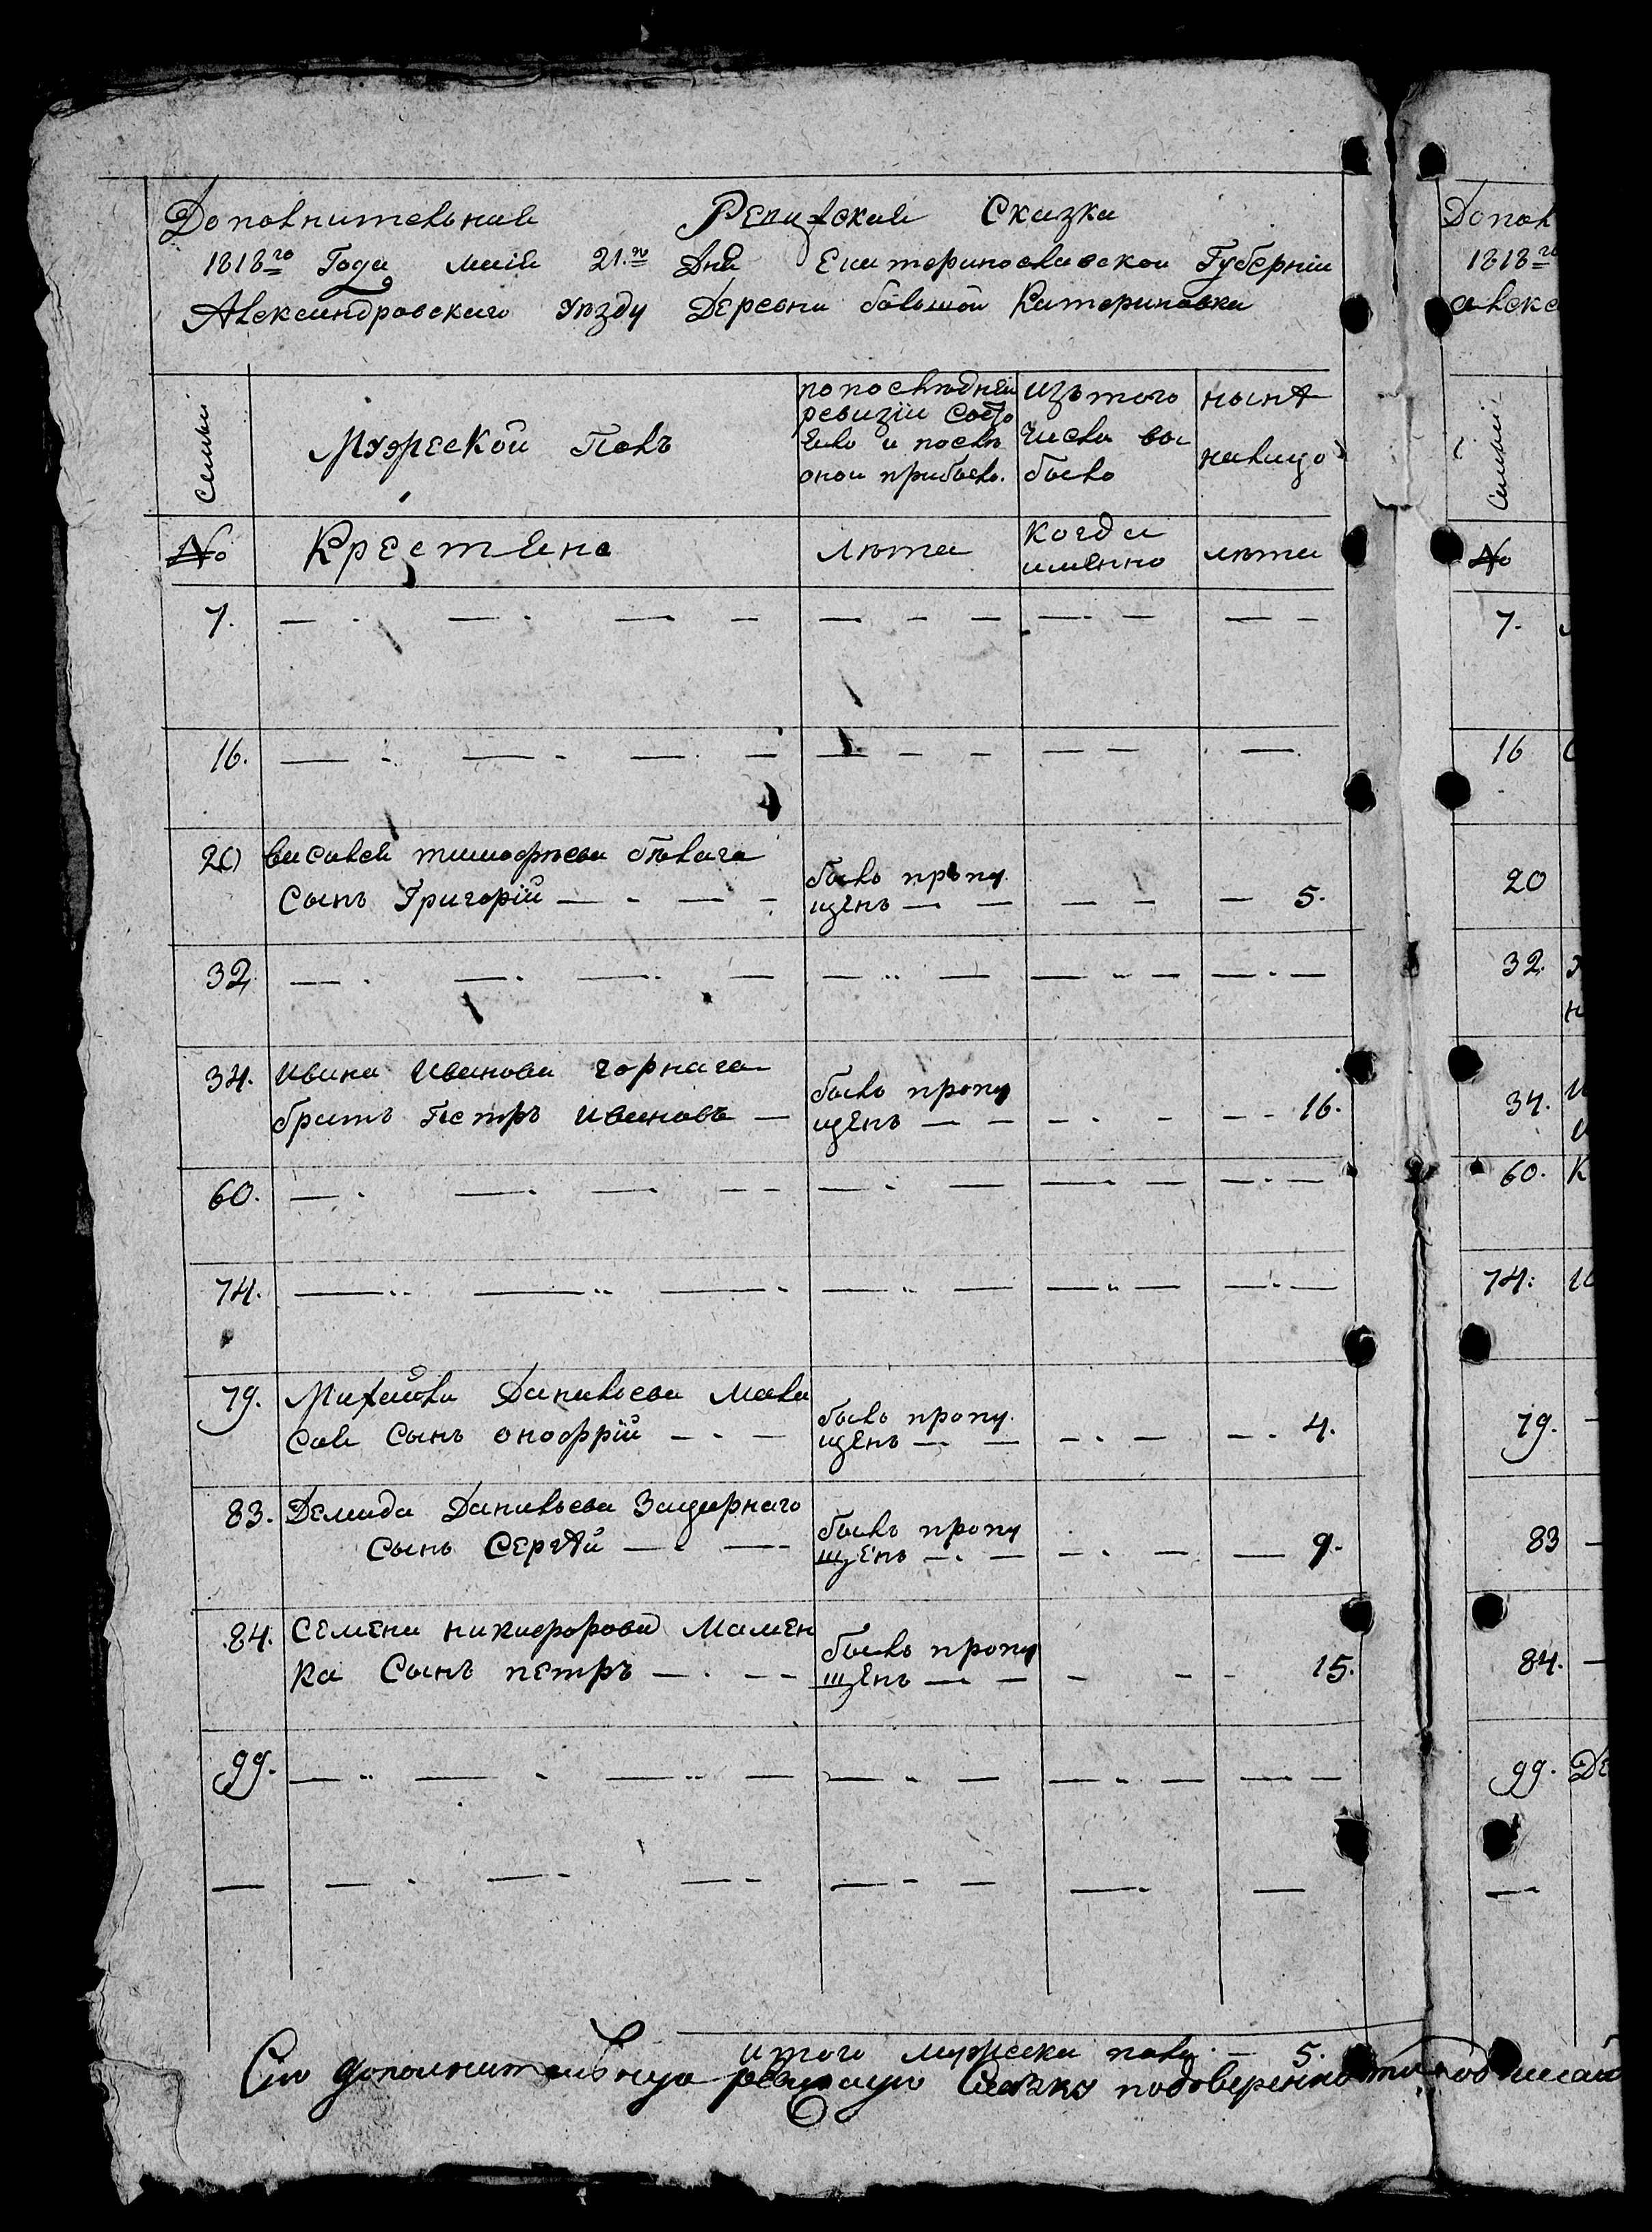 Дополнительная Ревижская Сказка
1818го Года маія 21.го Дня Екатеринославской Губерніи
Александровскаго уѣзду Деревни большой Катериновки
Семьи
Мужескои Полъ
по послѣдней
ревизіи состо
яло и послѣ
онои прибыло.
изъ того
числа вы
было
нынѣ
налицо
№
Крестяне
лѣта
когда
имянно
лѣта
7. — — — — — — — — — — —
16. — — — — — — — — — —
20 Савелея тимофѣева бѣлага
Сынъ Григорій — — —
былъ пропу
щенъ — — — — — 5.
32. — — — — — — — — — —
34. Ивана Иванова чорнага
братъ Петръ Ивановъ —
былъ пропу
щенъ — — — — — 16.
60. — — — — — — — — — —
74. — — — — — — — — —
79. Михайла Данильева Мала
Сая Сынъ онофрій — —
былъ пропу
щенъ — — — — — 4.
83. Демида Данильева Зацерного
Сынъ Сергѣй — —
былъ пропу
щенъ — — — — — 9.
84. Семена никифорова Мамен
ка Сынъ петръ — — —
былъ пропу
щенъ — — — — — 15.
99. — — — — — — — — — —
— — — — — — — — —
итого мужеска пола — 5.
Сию дополнительную ревискую Сказку
Допол
1818го
Алекс
Семьи
№
7.
16
20
32.
34.
60. К
74:
79.
83
84.
99. Де